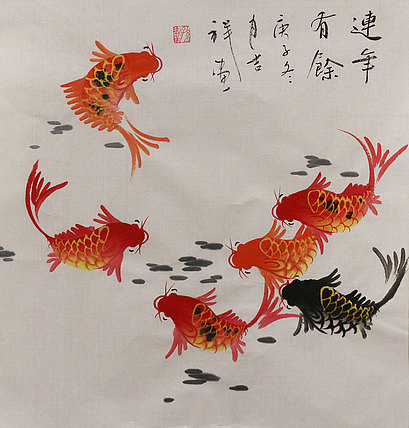 連年
有餘
庚子冬
月吉
祥画